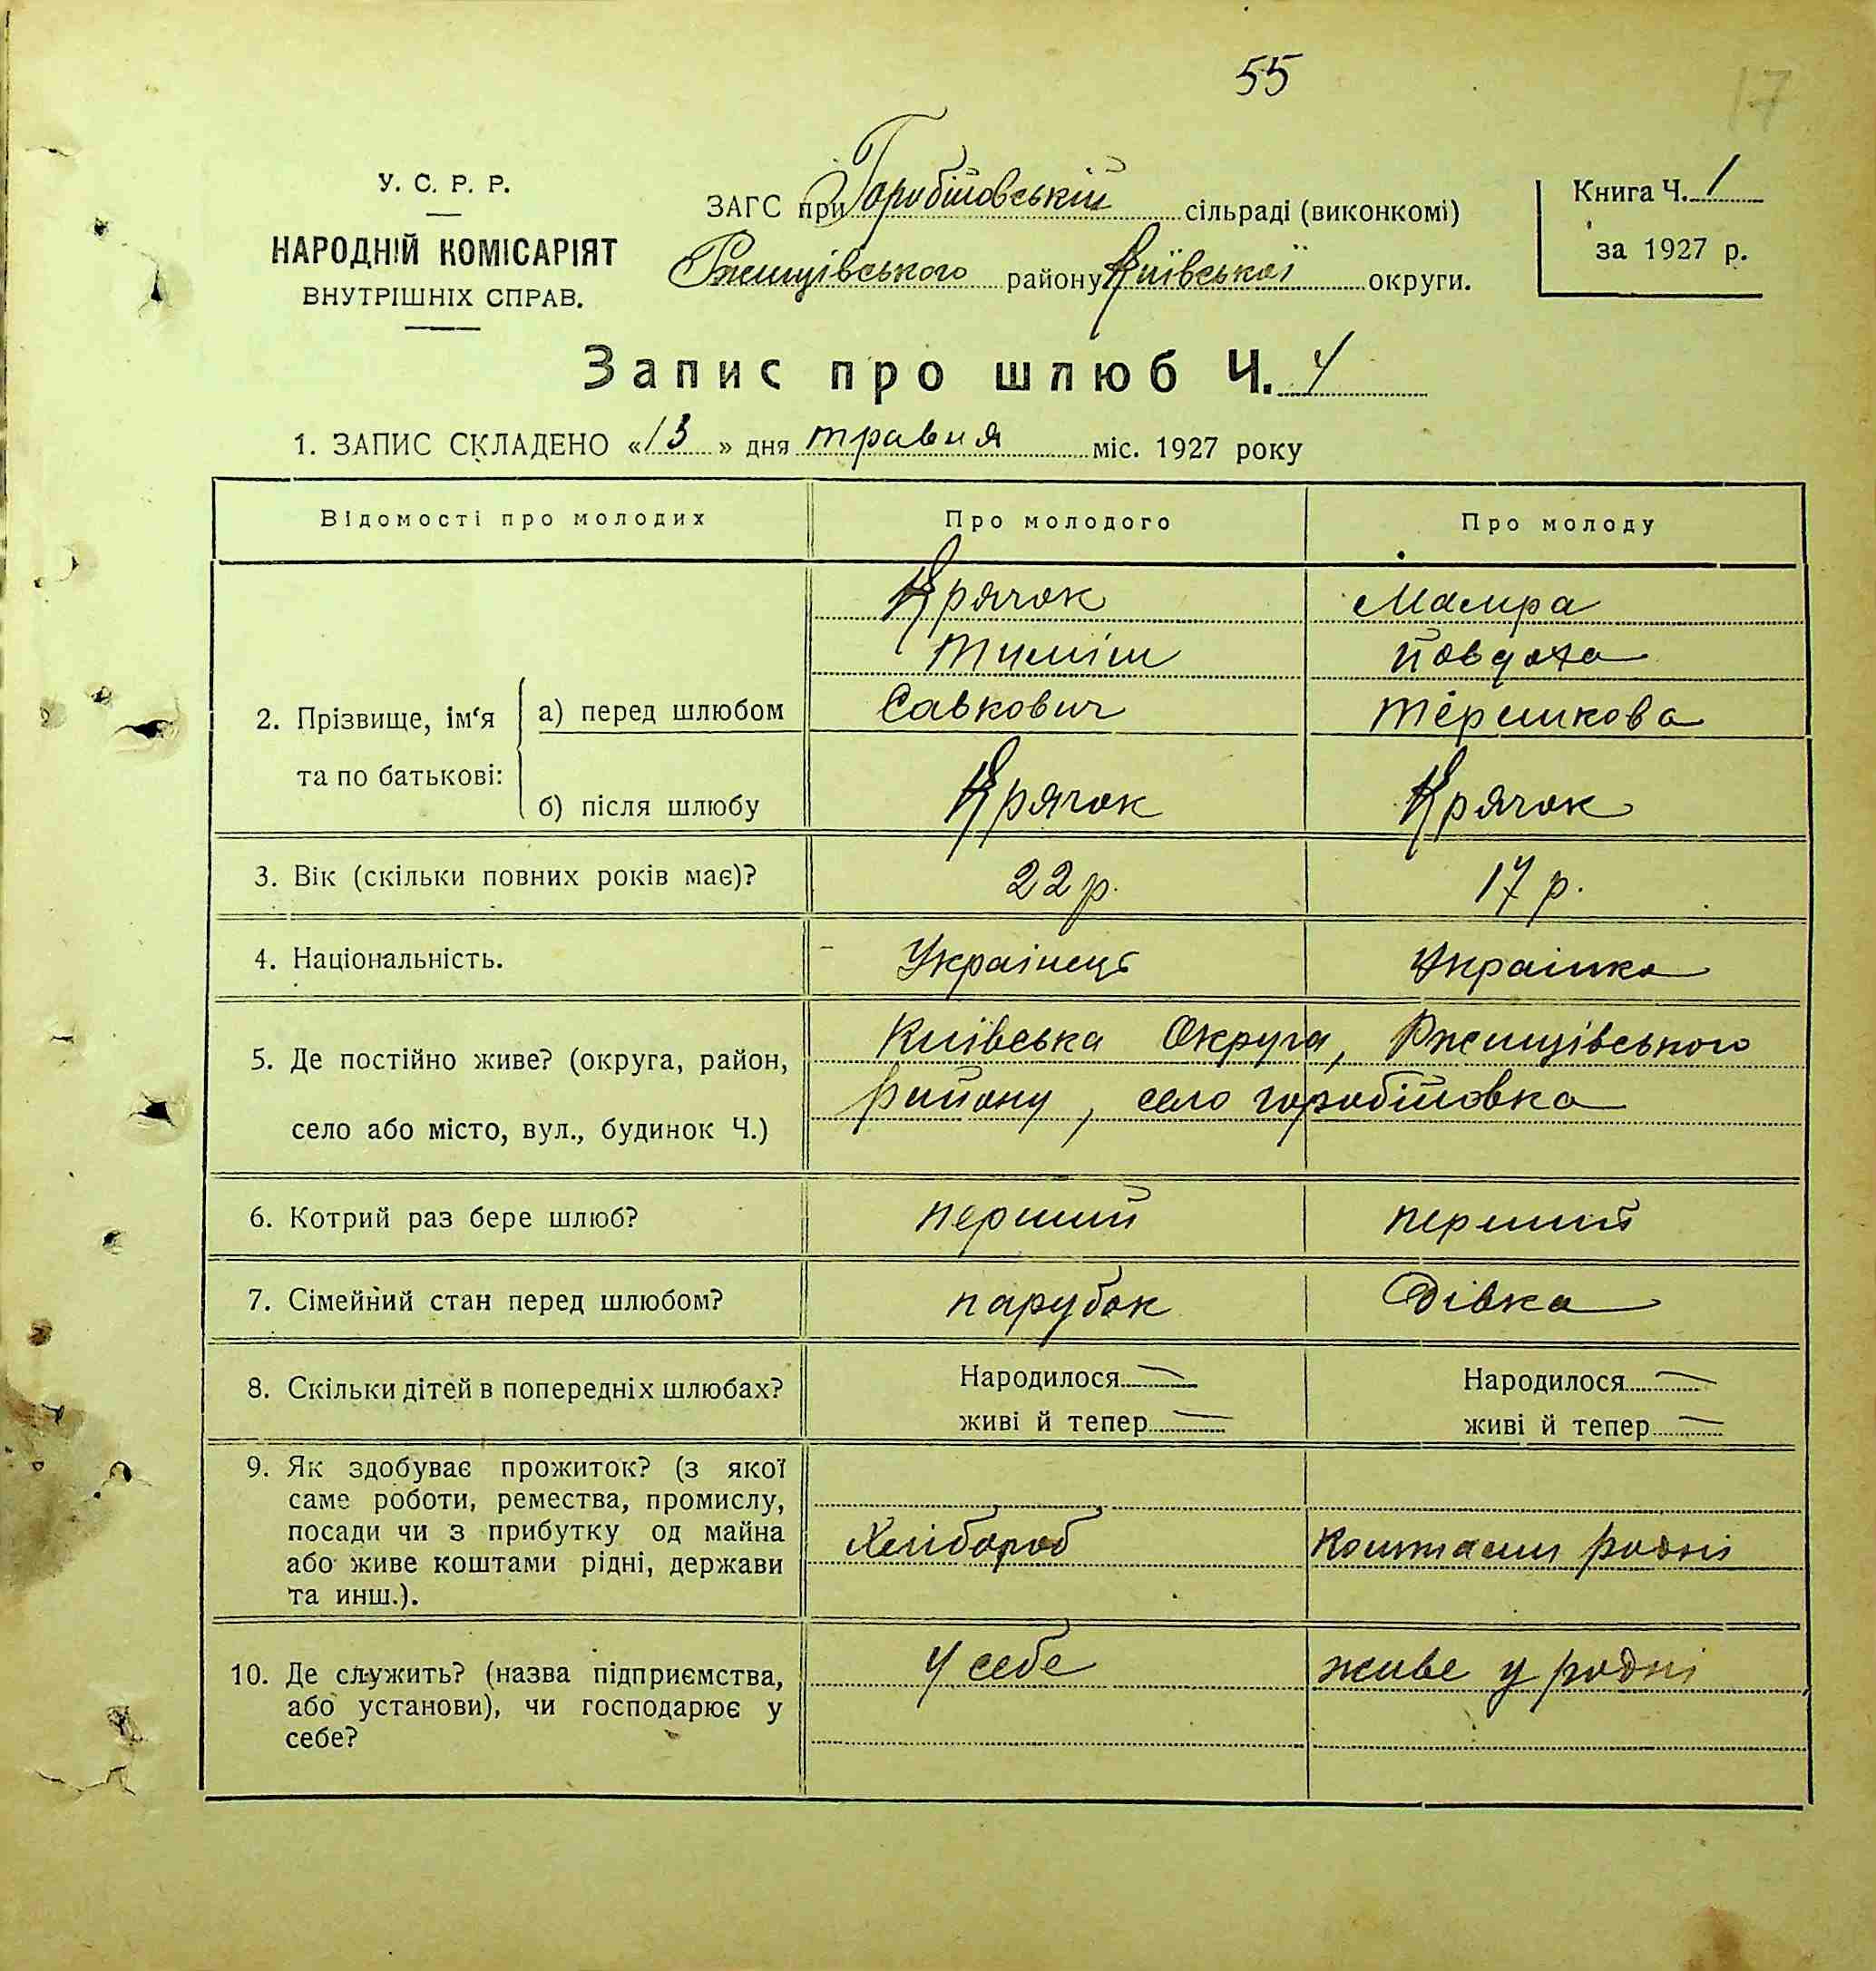 55
17
У. С. Р. Р.
НАРОДНІЙ КОМІСАРІЯТ
ВНУТРІШНІХ СПРАВ.
ЗАГС при Горобіївській сільраді (виконкомі)
Ржищівського району Київської округи.
Книга Ч. 1
за 1927 р.
Запис про шлюб Ч. 4
1. ЗАПИС СКЛАДЕНО «13» дня травня міс. 1927 року
Відомості про молодих Про молодого Про молоду
2. Прізвище, ім'я та по батькові:
а) перед шлюбом
Крячок
Тиміш
Савкович
Мамра
Йовдоха
Терешкова
б) після шлюбу Крячок Крячок
3. Вік (скільки повних років має)? 22 р. 17 р.
4. Національність. Українець Українка
5. Де постійно живе? (округа, район,
село або місто, вул., будинок Ч.)
Київська Округа, Ржищівського
району, село горобіївка
6. Котрий раз бере шлюб? перший перший
7. Сімейний стан перед шлюбом? парубок Дівка
8. Скільки дітей в попередніх шлюбах? Народилося — Народилося —
живі й тепер — живі й тепер —
9. Як здобуває прожиток? (з якої
саме роботи, ремества, промислу,
посади чи з прибутку од майна
або живе коштами рідні, держави
та инш.).
Хлібороб Коштами родні
10. Де служить? (назва підприємства,
або установи), чи господарює у
себе?
У себе живе у родні